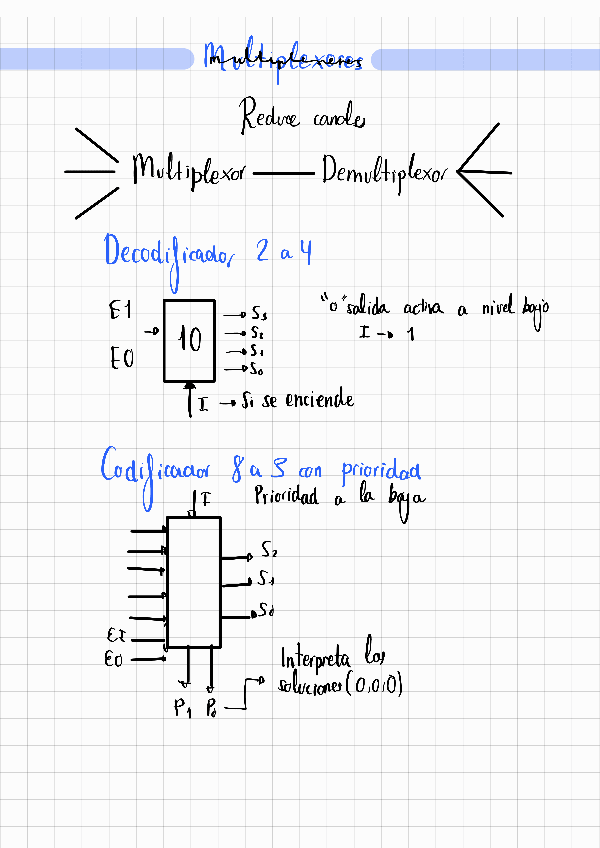 Multiplexores
Reduce canales
Multiplexor Demultiplexor
Decodificador 2 a 4
E1
E0
10
S3
S2
S1
S0
"0" salida activa a nivel bajo
I → 1
I → Si se enciende
Codificador 8 a 3 con prioridad
Prioridad a la baja
I
S2
S1
S0
EI
E0
P1 P0
Interpreta las
soluciones (0,0,0)